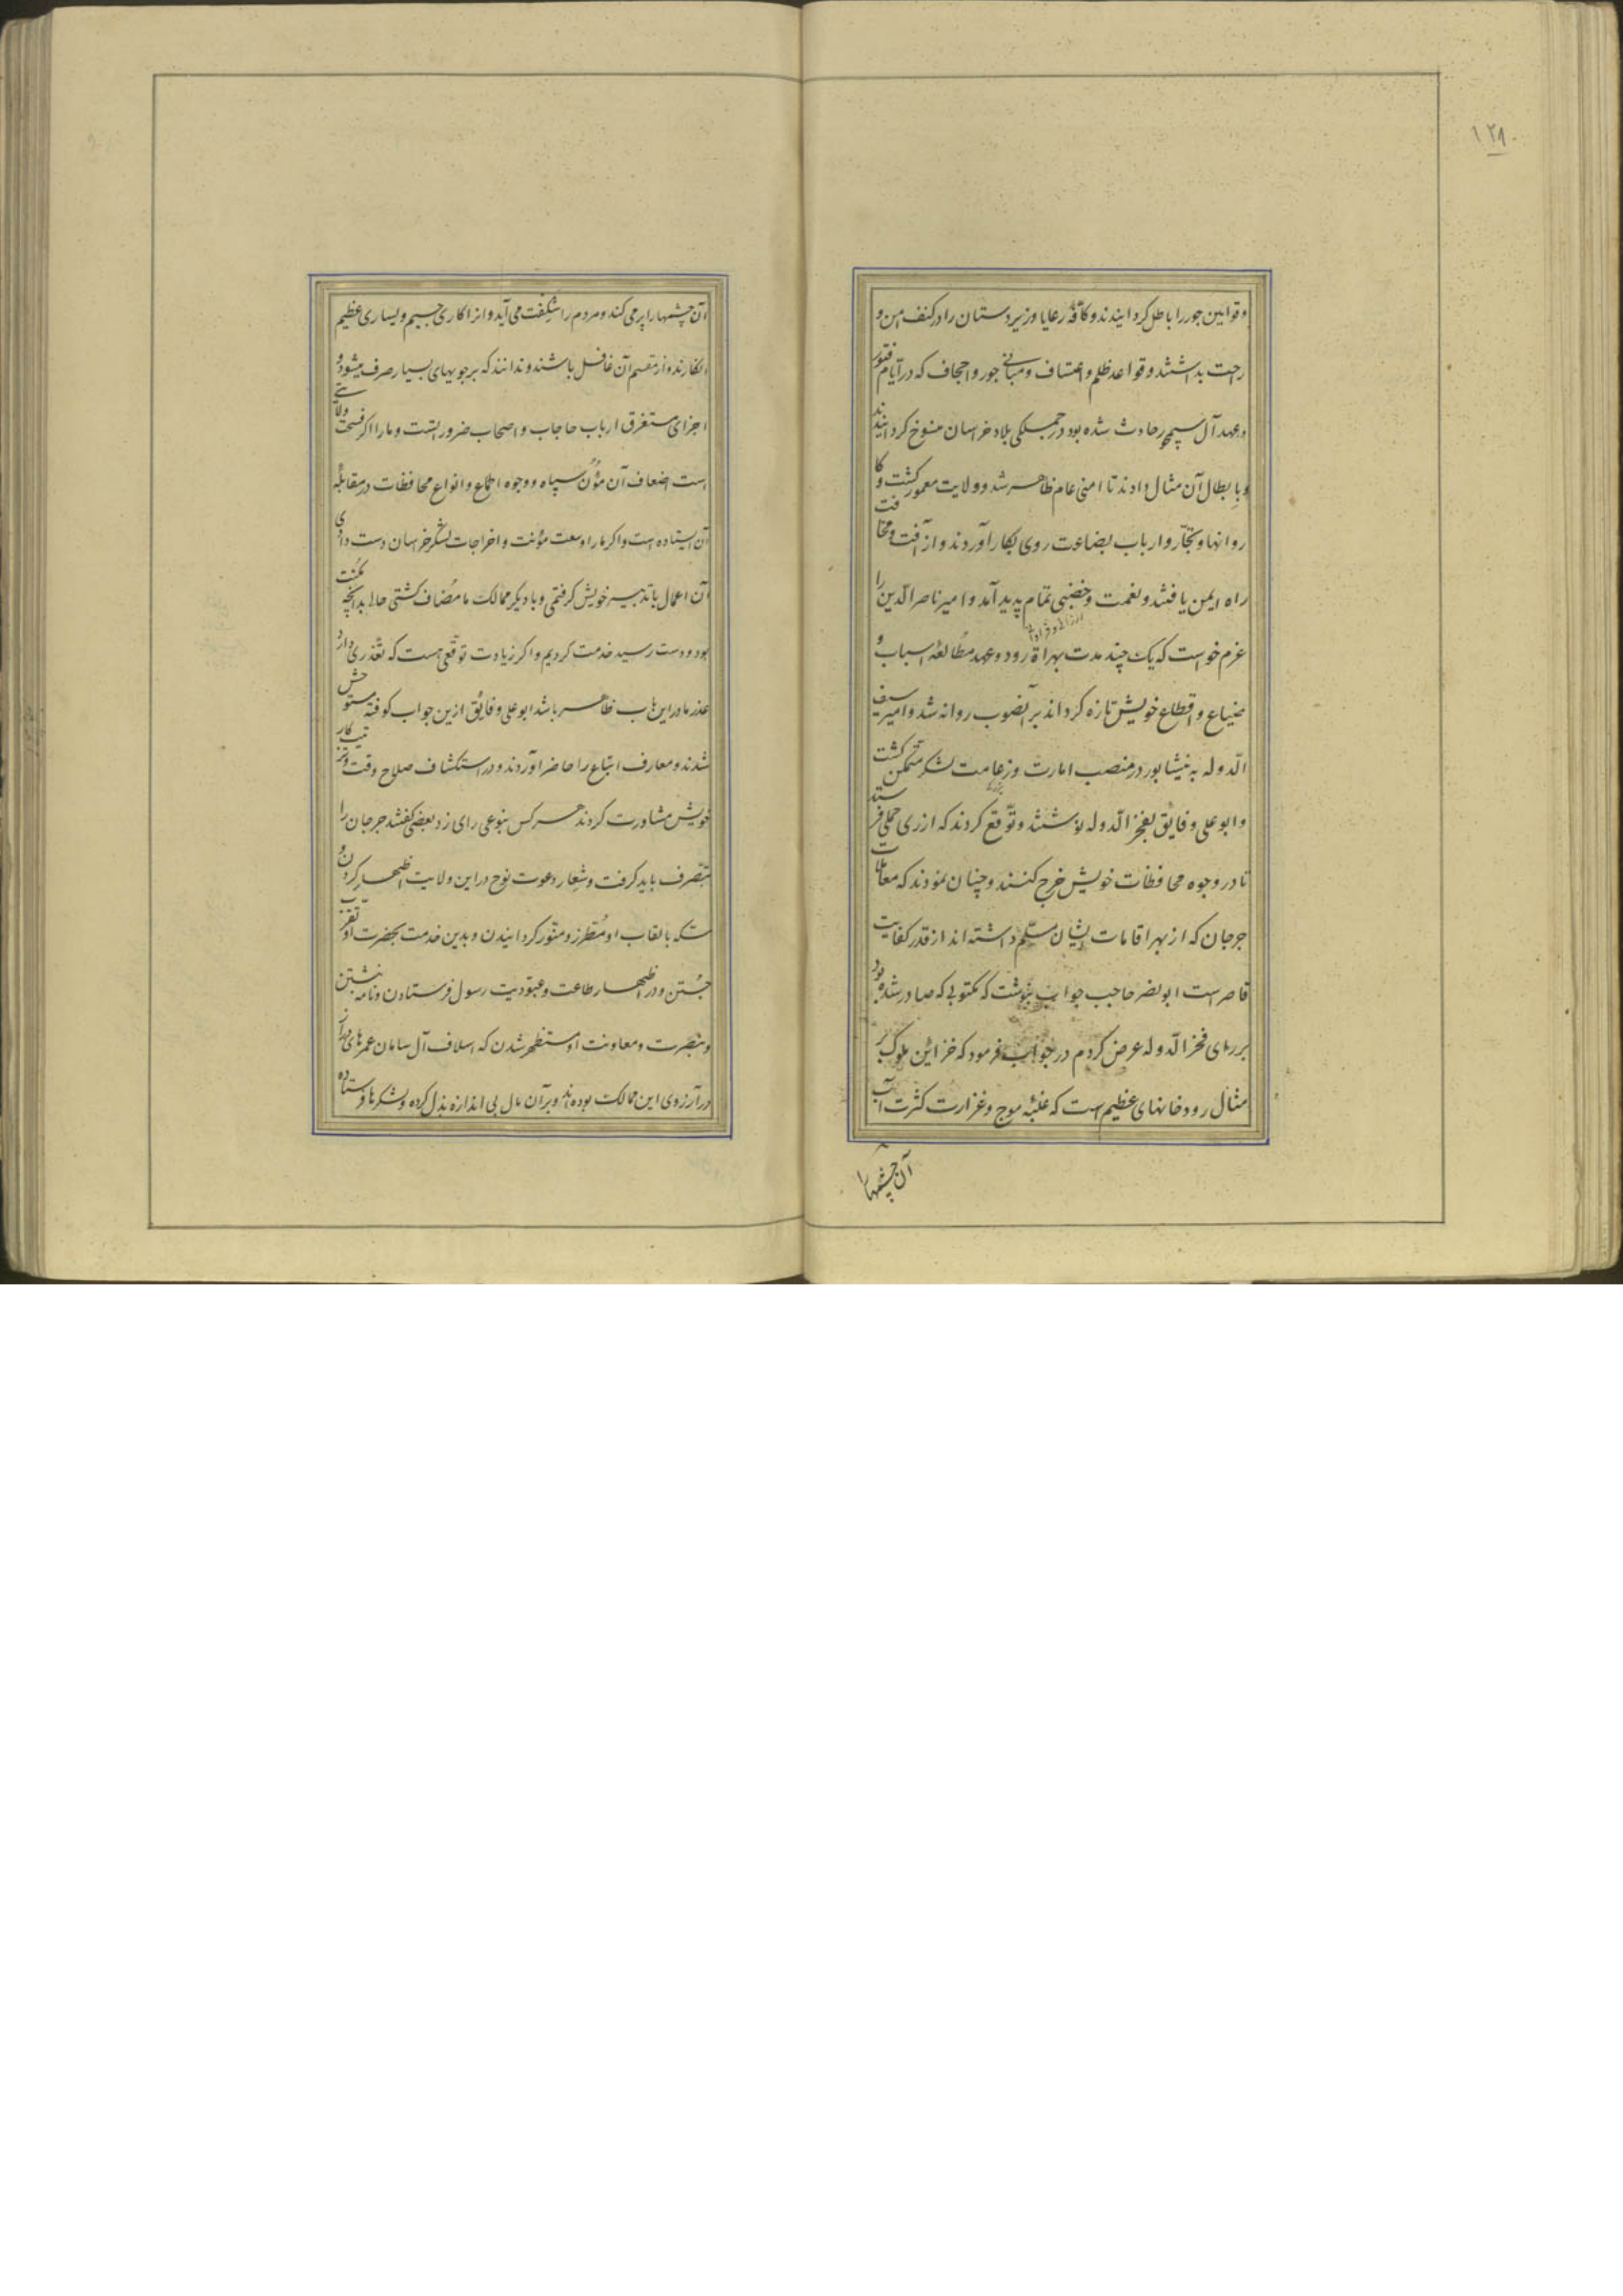 ۱۲۸
وقوانین جور را باطل کردانیدند و کافهٔ رعایا و زیردستان را در کنف امن و
راحت بداشتند و قواعد ظلم و اعتساف و مبانی جور و اجحاف که در ایام فتور
و عهد آل سیمجور حادث شده بود در جملکی بلاد خراسان منسوخ کردانیدند
و بابطال آن مثال دادند تا امنی عام ظاهر شد و ولایت معمور کشت و کا
روانها و تجّار و ارباب بضاعت روی بکار آوردند و از آفت و مخافت
راه ایمن یافتند و نعمت و خصبی تمام پدید آمد و امیر ناصر الدّین را
ارزانی و فراوانی
عزم خواست که یک چند مدت بهراة رود و عهد مطالعهٔ اسباب و
ضیاع و اقطاع خویش تازه کرداند بر آنصوب روانه شد و امیر سیف
الدّوله به نیشابور در منصب امارت و زعامت لشکر متمکن کشت
و ابو علی و فایق بفخر الدّوله نوشتند و توّقع کردند که از ری حملی فرستد
تا در وجوه محافظات خویش خرج کنند و چنان نمودند که معاملات
جرجان که از بهر اقامات ایشان مسلّم داشته اند از قدر کفایت
قاصر است ابو نصر حاجب جواب نوشت که مکتوبی که صادر شده بود
بر رای فخر الدّوله عرض کردم در جواب فرمود که خزائن ملوک بر
مثال رودخانهای عظیم است که غلبهٔ موج و غزارت کثرت آب
آن چشمها را
آن چشمها را پر می کند و مردم را شکفت می آید و انرا کاری جسیم و یساری عظیم
انکارند و از مقسم آن غافل باشند و ندانند که بر جویهای بسیار صرف میشود و
اجزای مستغرق ارباب حاجات و اصحاب ضرورا‌تست و ما را اکر فسحت ولایتی
است اضعاف آن مؤن سپاه و وجوه اطماع و انواع محافظات در مقابلهٔ
آن ایستاده است و اکر ما را وسعت مؤنت و اخراجات لشکر خراسان دست دادی
آن اعمال با تدبیر خویش کرفتمی و با دیکر ممالک ما مضاف کشتی حالا بدانچه مکنت
بود و دست رسید خدمت کردیم و اکر زیادت توقعی هست که تعذری دارد
عذر ما در این باب ظاهر باشد ابو علی و فایق ازین جواب کوفته مستوحش
شدند و معارف اتباع را حاضر آوردند و در استکشاف صلاح وقت و ترتیب کار
خویش مشاورت کردند هر کس بنوعی رای زد بعضی کفتند جرجان را
بتصّرف باید کرفت و شعار دعوت نوح در این ولایت اظهار کردن و
سکه بالقاب او مطرز و منوّر کردانیدن و بدین خدمت بحضرت او تقرّب
جُستن و در اظهار طاعت و عبودیت رسول فرستادن و نامه نبشتن
و بنصرت و معاونت او مستظهر شدن که اسلاف آل سامان عمرهای دراز
در آرزوی این ممالک بوده اند و بر آن مال بی اندازه بذل کرده و لشکرها فرستاده